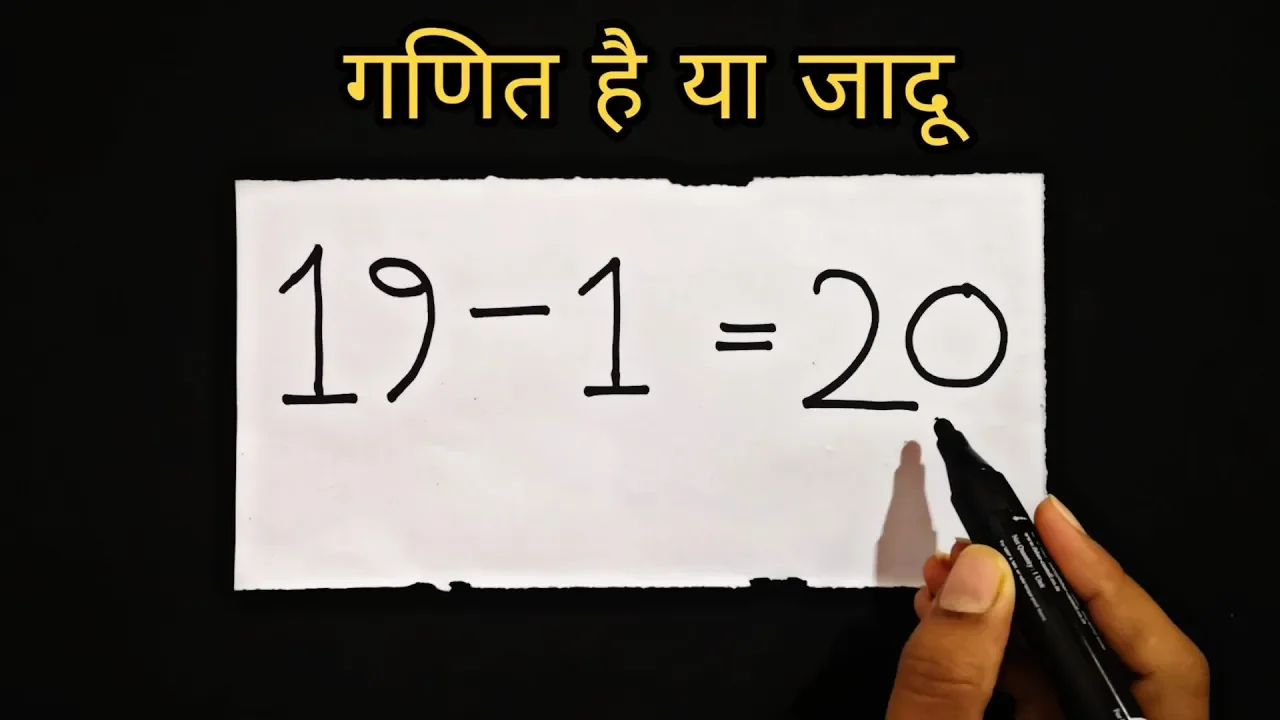 गणित है या जादू
19 - 1 = 20